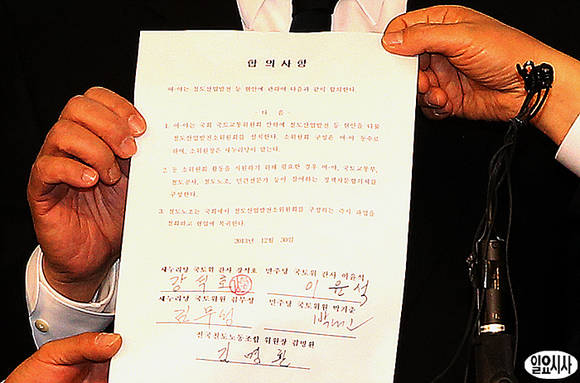 합 의 사 항
여·야는 철도산업발전 등 현안에 관하여 다음과 같이 합의한다.
- 다 음 -
1. 여·야는 국회 국토교통위원회 산하에 철도산업발전 등 현안을 다룰
철도산업발전소위원회를 설치한다. 소위원회 구성은 여·야 동수로
하며, 소위원장은 새누리당이 맡는다.
2. 동 소위원회 활동을 지원하기 위해 필요한 경우 여·야, 국토교통부,
철도공사, 철도노조, 민간전문가 등이 참여하는 정책자문협의체를
구성한다.
3. 철도노조는 국회에서 철도산업발전소위원회를 구성하는 즉시 파업을
철회하고 현업에 복귀한다.
2013년 12월 30일
새누리당 국토위 간사 강석호 민주당 국토위 간사 이윤석
강 석 호 이 윤 석
새누리당 국토위원 김무성 민주당 국토위원 박기춘
김 무 성
전국철도노동조합 위원장 김명환
김 명 환
일요시사